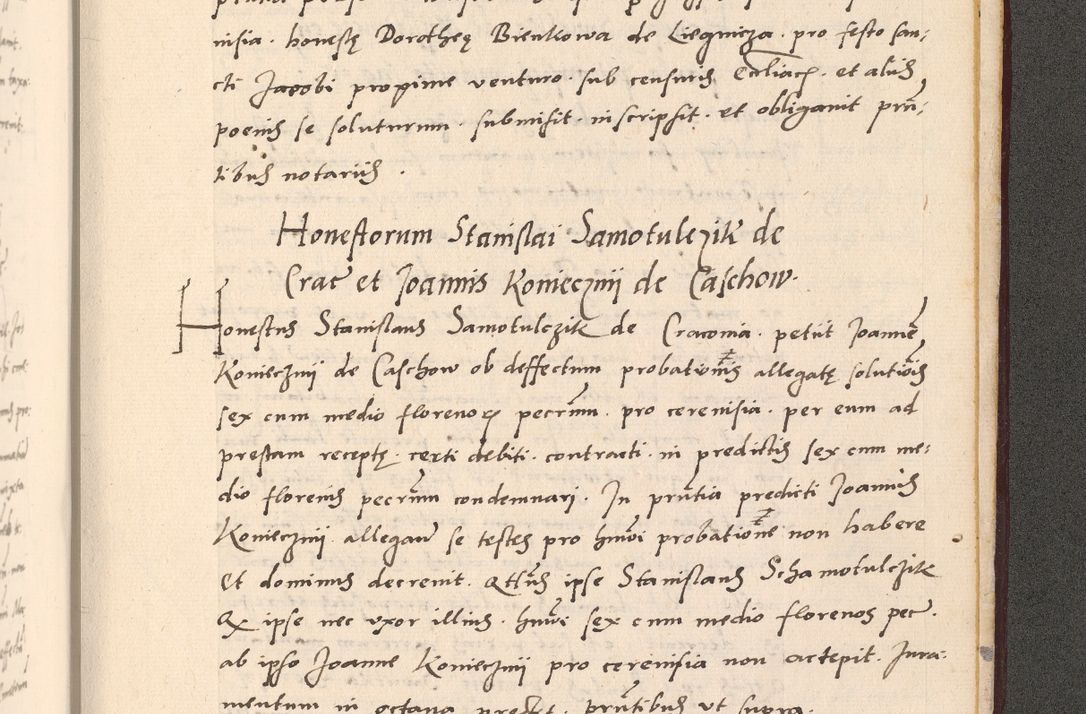 nisia. honestę Dorotheę Bienkowa de Liegnicza. pro festo san:
cti Jacobi proxime venturo. sub censuris Eccliacis. et aliis
poenis se soluturum. submisit. inscripsit. et obligavit prñ:
tibus notariis.
Honestorum Stanislai Samotulczik de
Crac et Joannis Konieczny de Caschow.
Honestus Stanislaus Samotulczik de Cracovia. petiit Joannem
Konieczny de Caschow ob deffectum probationis allegatę solutiois
sex cum medio florenorum pecũm. pro cerevisia. per eum ad
prestam receptę. certi debiti. contracti. in predictis sex cum me:
dio florenis pecũm condemnari. In prñtia predicti Joannis
Konieczny. allegan se testes pro hmõi probatione non habere
Et dominus decrevit. Qtũs ipse Stanislaus Schamotulczik
Q ipse nec vxor illius. hmõi sex cum medio florenos pec.
ab ipso Joanne Konieczny pro cerevisia non accepit. Jura:
mentum in octava prestet. prñtibus vt supra.